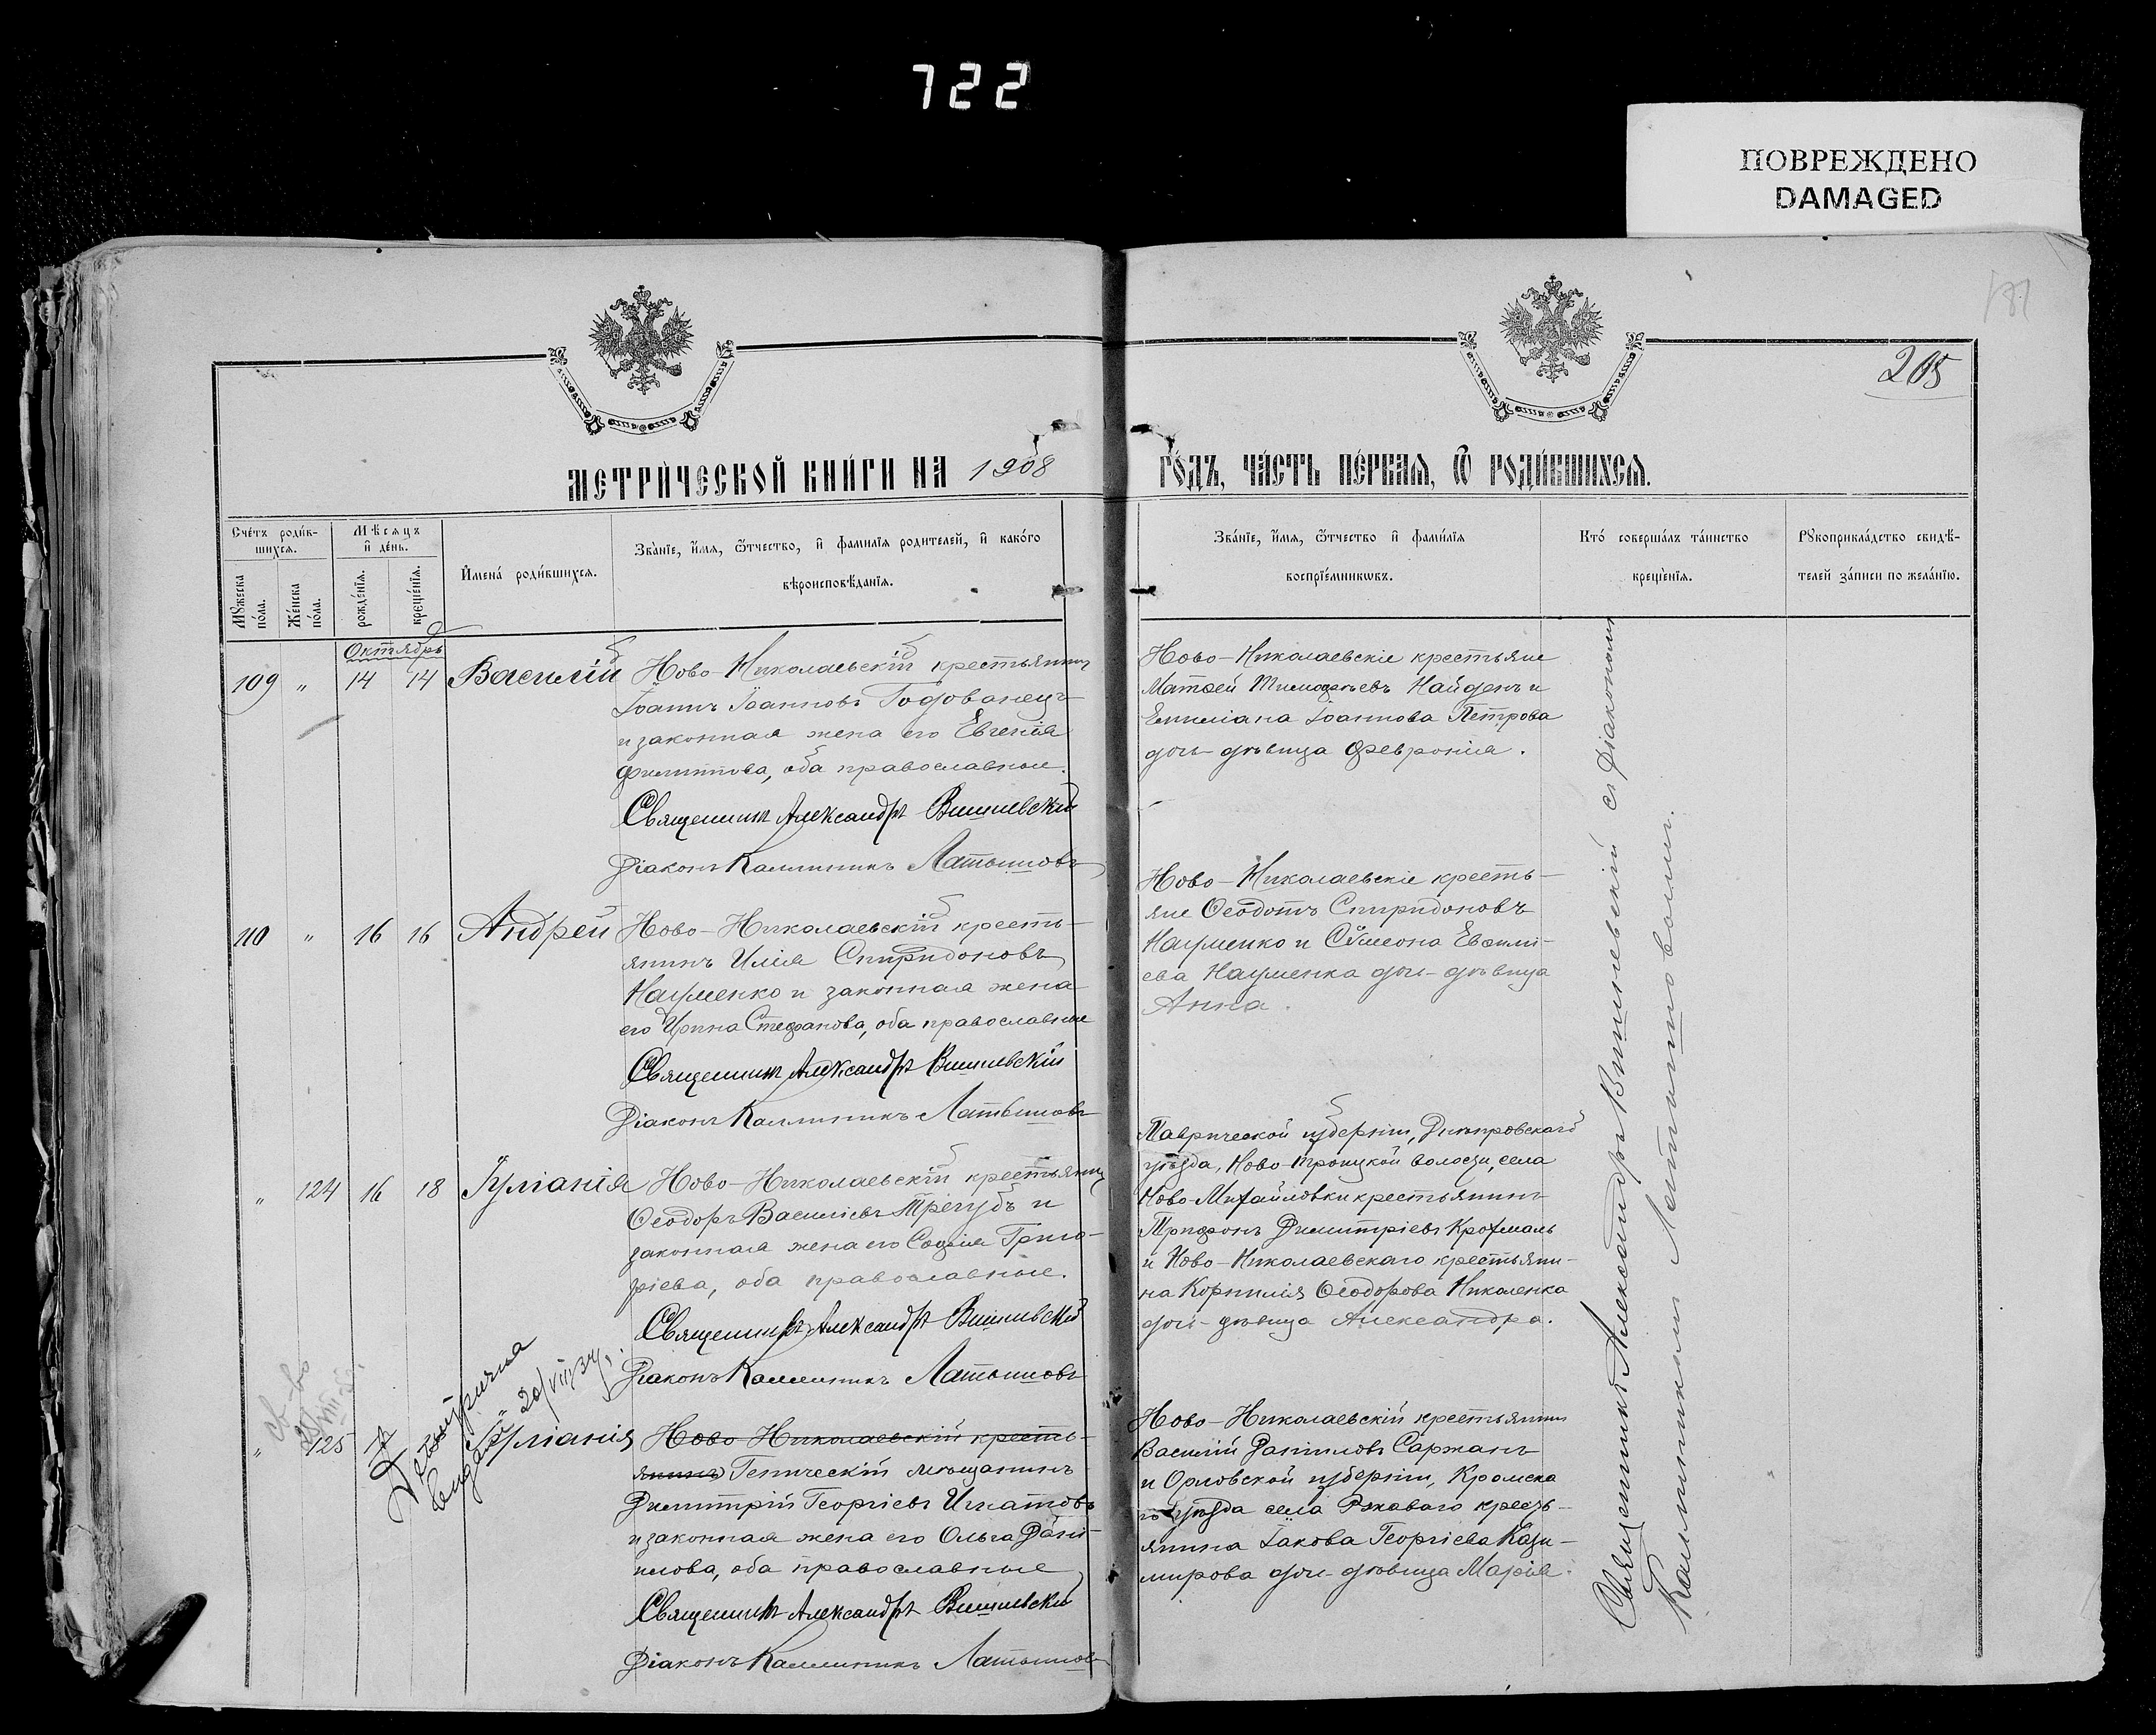 722
ПОВРЕЖДЕНО
DAMAGED
205
МЕТРИЧЕСКОЙ КНИГИ НА 1908 ГОДЪ, ЧАСТЬ ПЕРВАЯ, Ѿ РОДИВШИХСЯ.
Счетъ родив-
шихся.
Мужеска пола.
Женска пола.
Мѣсяцъ и день.
рожденія.
крещенія.
Имена родившихся.
Званіе, имя, ѿтчество, и фамилія родителей, и какого
вѣроисповѣданія.
Званіе, имя, ѿтчество и фамилія
воспріемниковъ.
Кто совершалъ таинство
крещенія.
Рукоприкладство свидѣ-
телей записи по желанію.
Октябрь
109 " 14 14 Василій
Ново-Николаевскій крестьянинъ
Іоаннъ Іоанновъ Годованецъ
и законная жена его Евгенія
Филиппова, оба православные.
Священникъ Александръ Вишневскій
Діаконъ Каллиникъ Латышовъ
Ново-Николаевскіе крестьяне
Матѳей Тимоѳеевъ Найденъ и
Емиліана Іоаннова Петрова
дочь девица Февронія.
110 " 16 16 Андрей
Ново-Николаевскій кресть-
янинъ Илія Спиридоновъ
Науменко и законная жена
его Ирина Стефанова, оба православные
Священникъ Александръ Вишневскій
Діаконъ Каллиникъ Латышовъ
Ново-Николаевскіе кресть-
яне Ѳеодотъ Спиридоновъ
Науменко и Сѵмеона Евфимі-
ева Науменка дочь-дѣвица
Анна.
" 124 16 18 Іуліанія
Ново-Николаевскій крестьянинъ
Ѳеодоръ Василіевъ Трегубъ и
законная жена его Софія Григо-
ріева, оба православные.
Священникъ Александръ Вишневскій
Діаконъ Каллиникъ Латышовъ
Таврической губерніи, Днѣпровскаго
уѣзда, Ново-Троицкой волости, села
Ново-Михайловки крестьянинъ
Трифонъ Димитріевъ Крохмаль
и Ново-Николаевскаго крестьяни-
на Корнилія Ѳеодорова Николенка
дочь-дѣвица Александра.
" 125 17 Іуліанія
20/VIII 34
Ново Николаевскій кресть-
янинъ Геническій мѣщанинъ
Димитрій Георгіевъ Игнатовъ
и законная жена его Ольга Дані-
илова, оба православные
Священникъ Александръ Вишневскій
Діаконъ Каллиникъ Латышовъ
Ново-Николаевскій крестьянинъ
Василій Даніиловъ Саржанъ
и Орловской губерніи, Кромска
го уѣзда села Ржаваго кресть-
янина Іакова Георгіева Кази-
мирова дочь дѣвица Марія.
Священникъ Александръ Вишневскій съ Діакономъ
Каллиникомъ Латышовымъ.